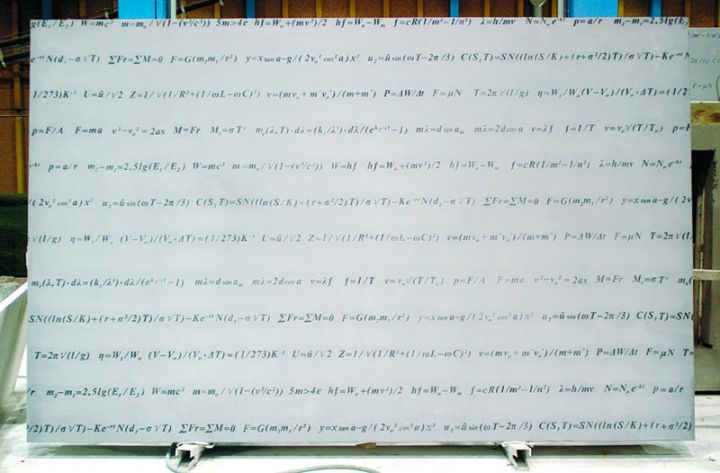 g(E₁/E₂) W=mc² m=mₒ/√(1-(v²/c²)) 5m>4e hf=Wₒ+(mv²)/2 hf=Wₙ-Wₘ f=cR(1/m²-1/n²) λ=h/mv N=Nₒe⁻ᵏˢ p=a/r m₂-m₁=2,5lg(E₁/
e⁻ʳᵗN(d₁-σ√T) ∑Fr=∑M=0 F=G(m₁m₂/r²) y=x tan a-g/(2vₒ² cos² a)x² u₂=û sin(ωT-2π/3) C(S,T)=SN((ln(S/K)+(r+σ²/2)T)/σ√T)-Ke⁻ʳᵗN
1/273)K⁻¹ U=û/√2 Z=1/√(1/R²+(1/ωL-ωC)²) v=(mvₒ+m´vₒ´)/(m+m´) P=ΔW/Δt F=μN T=2π√(l/g) η=W₁/Wₒ (V-Vₒ)/(Vₒ·ΔT)=(1/2
p=F/A F=ma v²-vₒ²=2as M=Fr Mₛ=σT⁴ mₛ(λ,T)·dλ=(k₁/λ⁵)·dλ/(eᵏ⁾⁻¹-1) mλ=d sin aₘ mλ=2d cos a v=λf f=1/T v=vₒ√(T/Tₒ) p=F
e⁻ᵏˢ p=a/r m₂-m₁=2,5lg(E₁/E₂) W=mc² m=mₒ/√(1-(v²/c²)) W=hf hf=Wₒ+(mv²)/2 hf=Wₙ-Wₘ f=cR(1/m²-1/n²) λ=h/mv N=Nₒe⁻ᵏˢ
/(2vₒ² cos² a)x² u₂=û sin(ωT-2π/3) C(S,T)=SN((ln(S/K)+(r+σ²/2)T)/σ√T)-Ke⁻ʳᵗN(d₁-σ√T) ∑Fr=∑M=0 F=G(m₁m₂/r²) y=x tan a-g/(2v
√(l/g) η=W₁/Wₒ (V-Vₒ)/(Vₒ·ΔT)=(1/273)K⁻¹ U=û/√2 Z=1/√(1/R²+(1/ωL-ωC)²) v=(mvₒ+m´vₒ´)/(m+m´) P=ΔW/Δt F=μN T=2π√(l/
mₛ(λ,T)·dλ=(k₁/λ⁵)·dλ/(eᵏ⁾⁻¹-1) mλ=d sin aₘ mλ=2d cos a v=λf f=1/T v=vₒ√(T/Tₒ) p=F/A F=ma v²-vₒ²=2as M=Fr Mₛ=σT⁴
SN((ln(S/K)+(r+σ²/2)T)/σ√T)-Ke⁻ʳᵗN(d₁-σ√T) ∑Fr=∑M=0 F=G(m₁m₂/r²) y=x tan a-g/(2vₒ² cos² a)x² u₂=û sin(ωT-2π/3) C(S,T)=SN
T=2π√(l/g) η=W₁/Wₒ (V-Vₒ)/(Vₒ·ΔT)=(1/273)K⁻¹ U=û/√2 Z=1/√(1/R²+(1/ωL-ωC)²) v=(mvₒ+m´vₒ´)/(m+m´) P=ΔW/Δt F=μN T=
/r m₂-m₁=2,5lg(E₁/E₂) W=mc² m=mₒ/√(1-(v²/c²)) 5m>4e hf=Wₒ+(mv²)/2 hf=Wₙ-Wₘ f=cR(1/m²-1/n²) λ=h/mv N=Nₒe⁻ᵏˢ p=a/r
²/2)T)/σ√T)-Ke⁻ʳᵗN(d₁-σ√T) ∑Fr=∑M=0 F=G(m₁m₂/r²) y=x tan a-g/(2vₒ² cos² a)x² u₂=û sin(ωT-2π/3) C(S,T)=SN((ln(S/K)+(r+σ²/2)